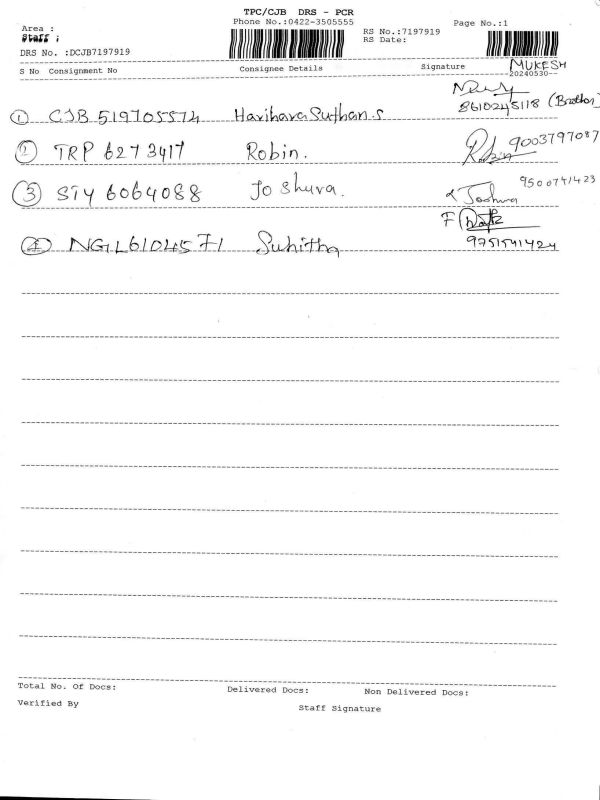 TPC/CJB DRS - PCR
Area : Phone No.:0422-3505555 Page No.:1
Staff : RS No.:7197919
RS Date:
DRS No. :DCJB7197919
S No Consignment No Consignee Details Signature MUKESH
20240530--
① CJB 519705574 Hariharasuthan.s 8610245118 (Brother)
② TRP 6273417 Robin. Robin 9003797087
③ STY 6064088 Joshuva. Joshua 9500741423
④ NGL6104571 Suhitha F 9751541424
Total No. Of Docs: Delivered Docs: Non Delivered Docs:
Verified By Staff Signature